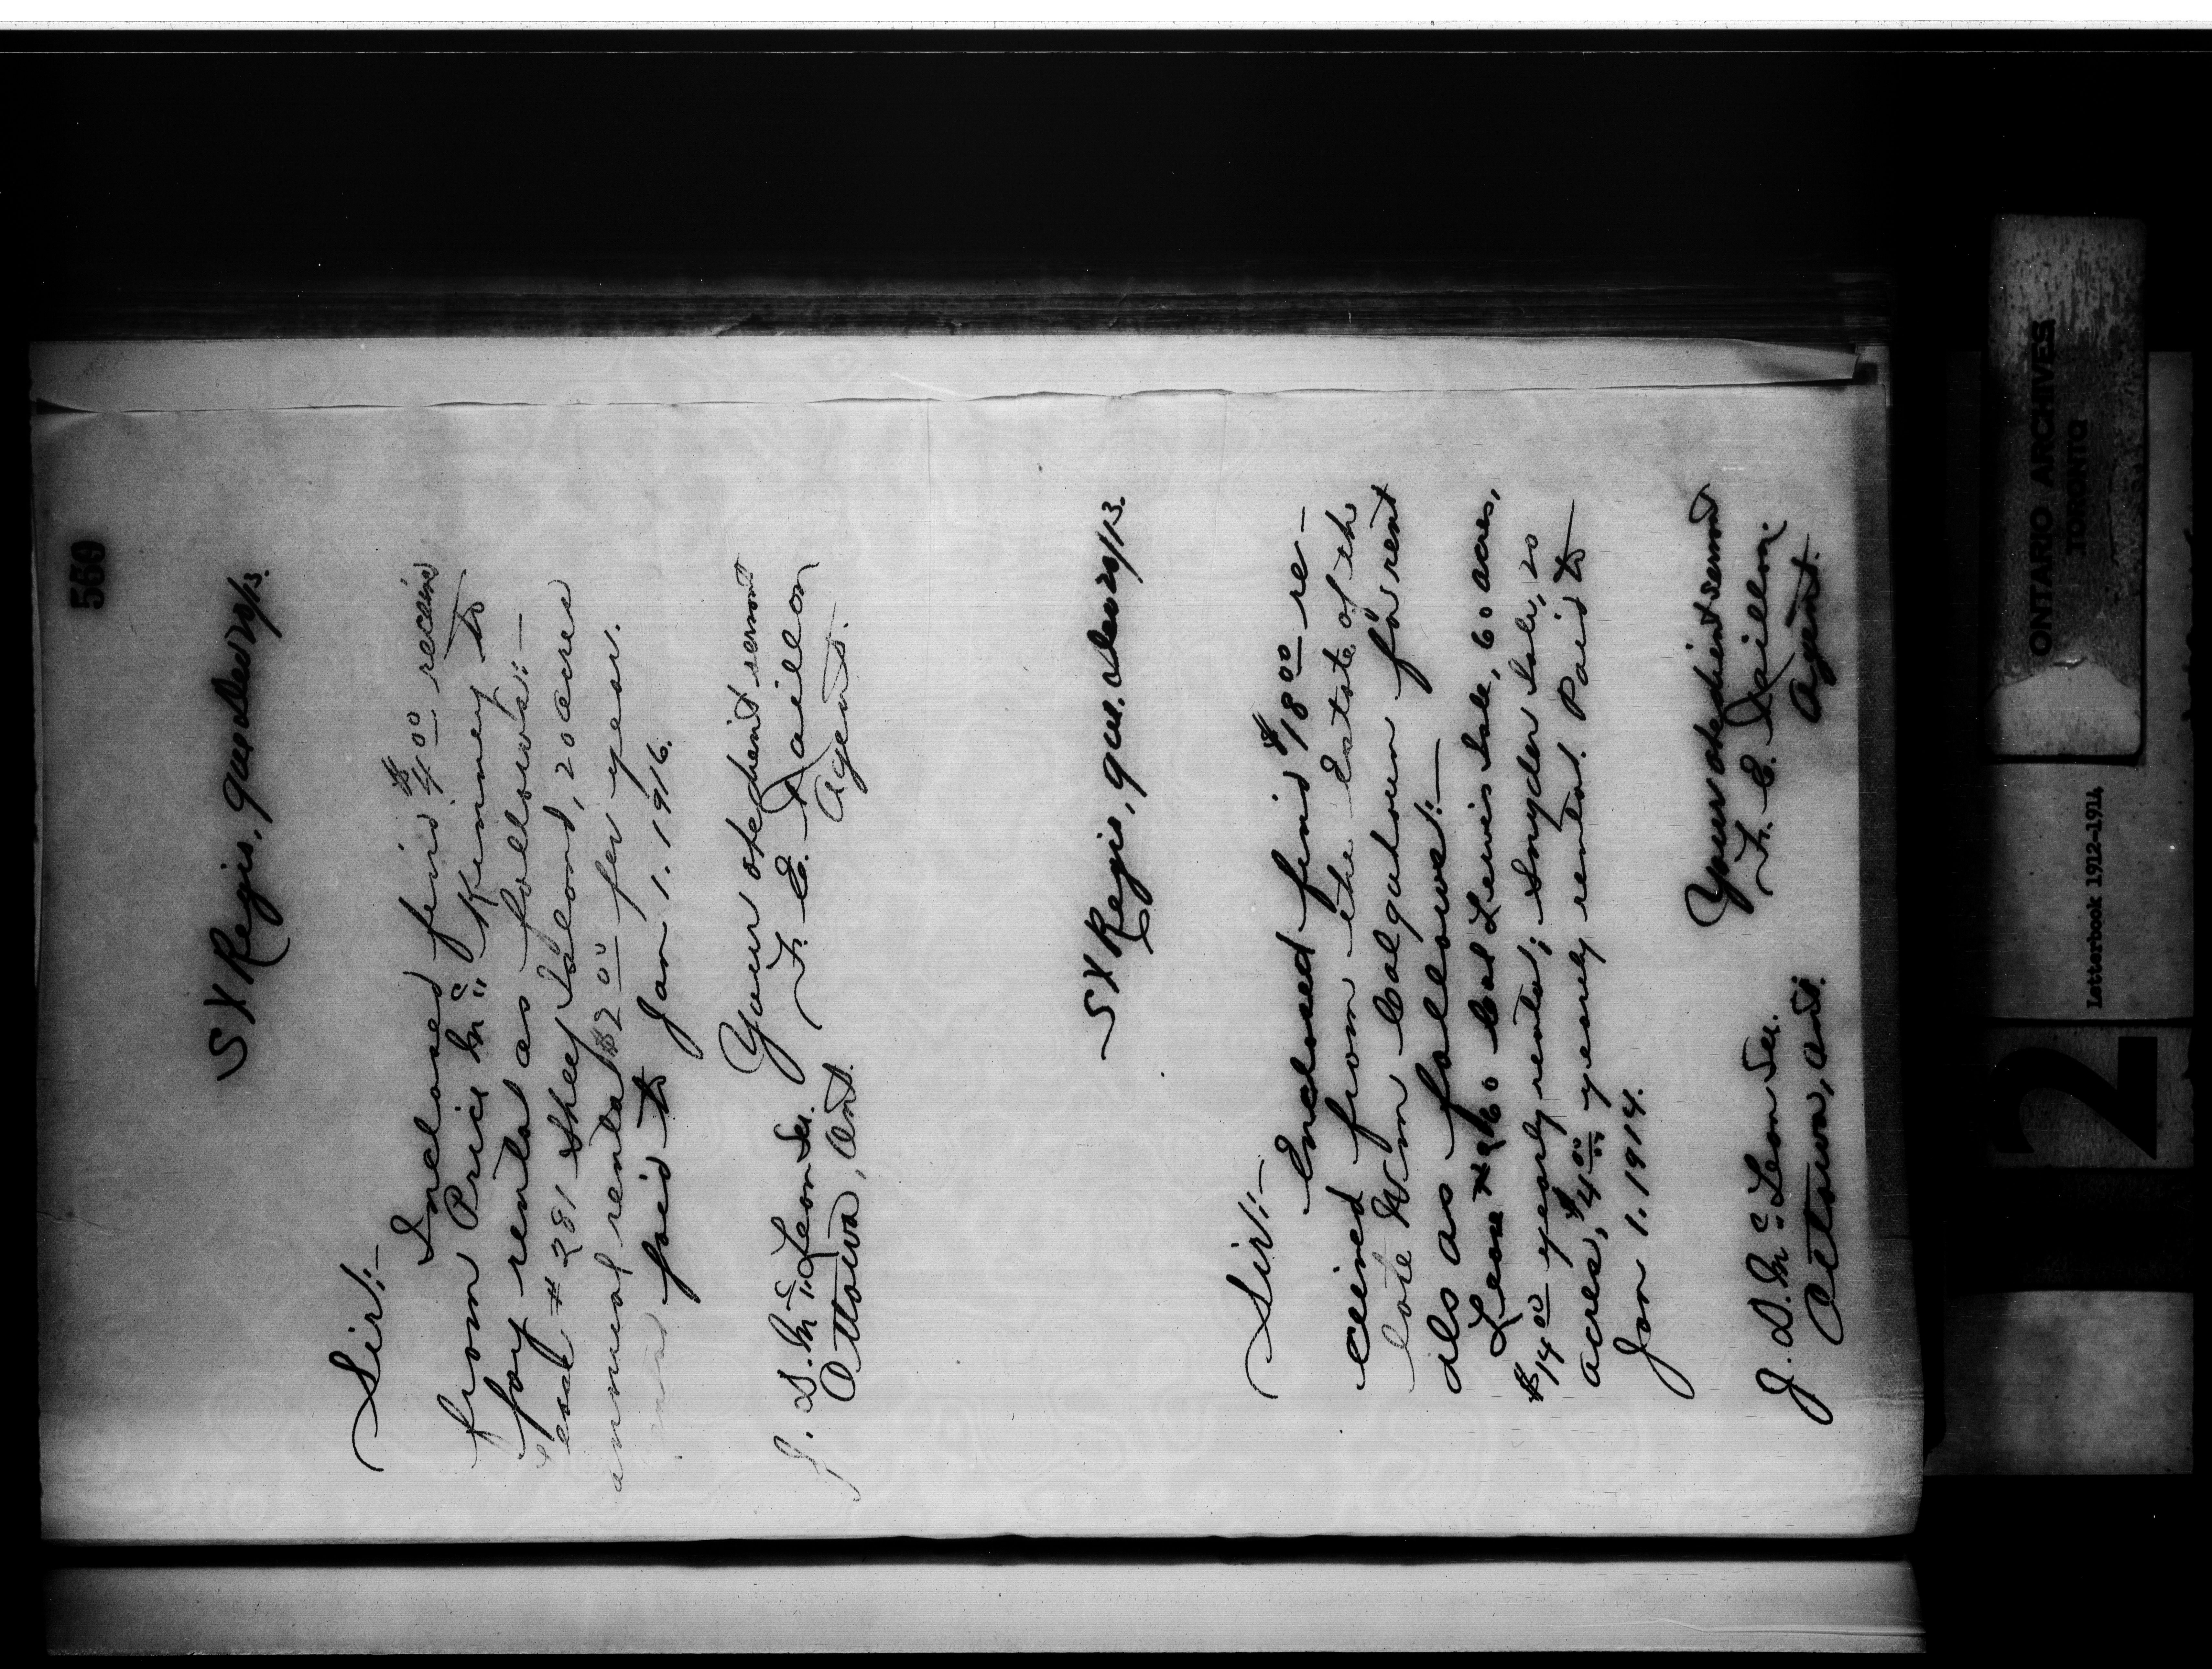 569
St Regis, Que Dec 20/13.
Sir:—
Inclosed find $4.00 receivd
from Price Mc Kinney to
pay rental as follows:—
Lease # 281 Sheep Island, 20 acres
annual rental $2.00 per year.
paid to Jan 1. 1916.
Your obedient servant
F. E. Taillon
Agent.
J. D. McLean Sec.
Ottawa, Ont.
St Regis, Que. Dec 20/13.
Sir:—
Enclosed find $18.00 re-
ceived from the Estate of the
late Wm Colquhoun for rent
als as follows:—
Lease # 60 Col Lewis Isle, 60 acres,
$14.00 yearly rental; Snyder Isle, 20
acres, $4.00 yearly rental. Paid to
Jan 1. 1914.
Your obedient servant
F. E. Taillon
Agent.
J. D. McLean Sec.
Ottawa, Ont.
ONTARIO ARCHIVES
TORONTO
Letterbook 1912-1914
2